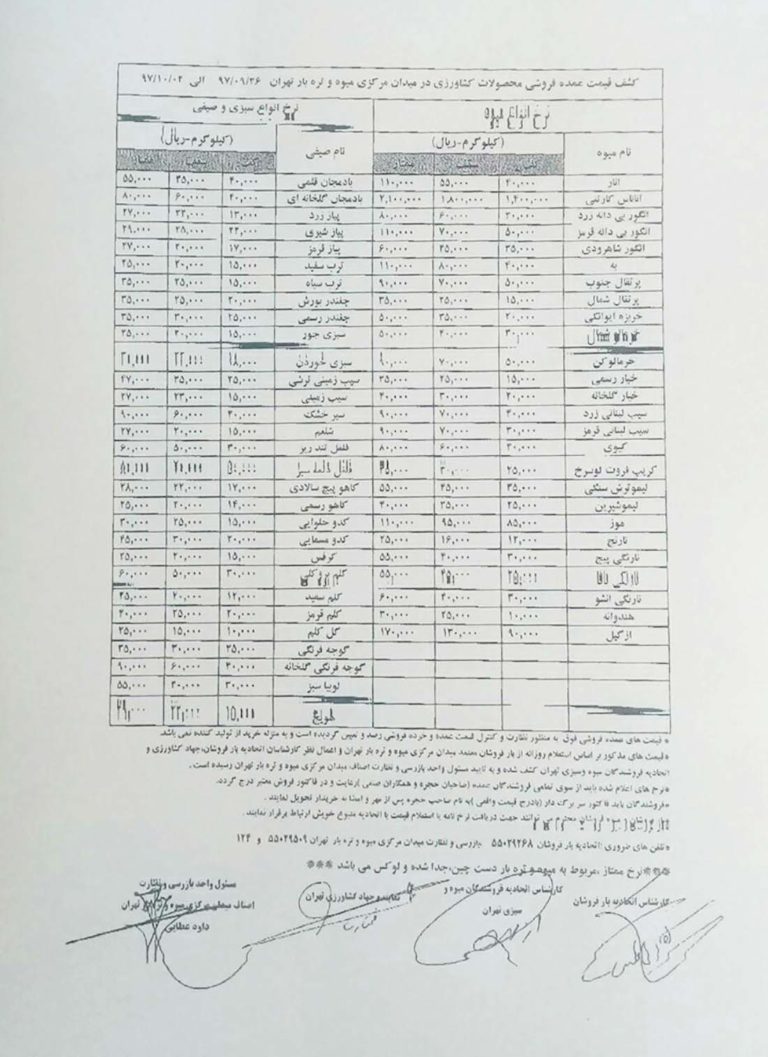 کشف قیمت عمده فروشی محصولات کشاورزی در میدان مرکزی میوه و تره بار تهران ۹۷/۰۹/۲۶ الی ۹۷/۱۰/۰۲
نرخ انواع میوه نرخ انواع سبزی و صیفی
نام میوه (کیلوگرم-ریال) نام صیفی (کیلوگرم-ریال)
انار ۴۰,۰۰۰ ۵۵,۰۰۰ ۱۱۰,۰۰۰ بادمجان قلمی ۲۰,۰۰۰ ۳۵,۰۰۰ ۵۵,۰۰۰
آناناس کارتنی ۱,۴۰۰,۰۰۰ ۱,۸۰۰,۰۰۰ ۲,۱۰۰,۰۰۰ بادمجان گلخانه ای ۴۰,۰۰۰ ۶۰,۰۰۰ ۸۰,۰۰۰
انگور بی دانه زرد ۶۰,۰۰۰ ۸۰,۰۰۰ پیاز زرد ۱۳,۰۰۰ ۲۲,۰۰۰ ۲۷,۰۰۰
انگور بی دانه قرمز ۵۰,۰۰۰ ۷۰,۰۰۰ ۱۱۰,۰۰۰ پیاز شیری ۲۲,۰۰۰ ۲۵,۰۰۰ ۲۹,۰۰۰
انگور شاهرودی ۳۵,۰۰۰ ۴۵,۰۰۰ ۶۰,۰۰۰ پیاز قرمز ۱۷,۰۰۰ ۲۰,۰۰۰ ۲۷,۰۰۰
به ۸۰,۰۰۰ ۱۱۰,۰۰۰ ترب سفید ۱۵,۰۰۰ ۲۰,۰۰۰ ۲۵,۰۰۰
پرتقال جنوب ۵۰,۰۰۰ ۷۰,۰۰۰ ۹۰,۰۰۰ ترب سیاه ۱۵,۰۰۰ ۲۵,۰۰۰ ۳۵,۰۰۰
پرتقال شمال ۱۵,۰۰۰ ۲۵,۰۰۰ ۳۵,۰۰۰ چغندر بورش ۲۰,۰۰۰ ۲۵,۰۰۰ ۳۵,۰۰۰
خربزه ایوانکی ۲۰,۰۰۰ ۳۵,۰۰۰ ۵۰,۰۰۰ چغندر رسمی ۲۵,۰۰۰ ۳۰,۰۰۰ ۳۵,۰۰۰
خرمالو شمال ۳۰,۰۰۰ ۴۰,۰۰۰ ۵۰,۰۰۰ سبزی جور ۱۵,۰۰۰ ۲۰,۰۰۰ ۲۵,۰۰۰
خرمالوکن ۵۰,۰۰۰ ۷۰,۰۰۰ ۹۰,۰۰۰ سبزی خوردن ۱۸,۰۰۰ ۲۲,۰۰۰
خیار رسمی ۱۵,۰۰۰ ۲۵,۰۰۰ ۳۵,۰۰۰ سیب زمینی ترشی ۲۵,۰۰۰ ۳۵,۰۰۰ ۴۷,۰۰۰
خیار گلخانه ۲۰,۰۰۰ ۳۰,۰۰۰ ۴۰,۰۰۰ سیب زمینی ۱۵,۰۰۰ ۲۳,۰۰۰ ۲۷,۰۰۰
سیب لبنانی زرد ۷۰,۰۰۰ ۹۰,۰۰۰ سیر خشک ۴۰,۰۰۰ ۶۰,۰۰۰ ۹۰,۰۰۰
سیب لبنانی قرمز ۷۰,۰۰۰ ۹۰,۰۰۰ شلغم ۱۵,۰۰۰ ۲۰,۰۰۰ ۲۷,۰۰۰
کیوی ۶۰,۰۰۰ ۸۰,۰۰۰ فلفل تند ریز ۳۰,۰۰۰ ۵۰,۰۰۰ ۶۰,۰۰۰
کریپ فروت توسرخ ۲۵,۰۰۰ ۳۰,۰۰۰ ۳۵,۰۰۰ فلفل دلمه سبز ۵۰,۰۰۰
لیموترش سنگی ۳۵,۰۰۰ ۴۵,۰۰۰ ۵۵,۰۰۰ کاهو پیچ سالادی ۱۷,۰۰۰ ۲۲,۰۰۰ ۲۸,۰۰۰
لیموشیرین ۲۵,۰۰۰ ۳۵,۰۰۰ ۴۰,۰۰۰ کاهو رسمی ۱۴,۰۰۰ ۲۰,۰۰۰ ۲۵,۰۰۰
موز ۸۵,۰۰۰ ۹۵,۰۰۰ ۱۱۰,۰۰۰ کدو حلوایی ۱۵,۰۰۰ ۲۵,۰۰۰ ۳۰,۰۰۰
نارنج ۱۲,۰۰۰ ۱۶,۰۰۰ ۲۵,۰۰۰ کدو مسمایی ۲۰,۰۰۰ ۳۰,۰۰۰ ۴۵,۰۰۰
نارنگی پیج ۳۰,۰۰۰ ۴۰,۰۰۰ ۵۵,۰۰۰ کرفس ۱۵,۰۰۰ ۲۰,۰۰۰ ۲۵,۰۰۰
۲۵,۰۰۰ ۴۵,۰۰۰ ۵۵,۰۰۰ کلم بروکلی ۳۰,۰۰۰ ۵۰,۰۰۰ ۶۰,۰۰۰
نارنگی انشو ۳۰,۰۰۰ ۴۰,۰۰۰ ۶۰,۰۰۰ کلم سفید ۱۲,۰۰۰ ۲۰,۰۰۰ ۲۵,۰۰۰
هندوانه ۱۰,۰۰۰ ۲۵,۰۰۰ ۳۰,۰۰۰ کلم قرمز ۲۰,۰۰۰ ۲۵,۰۰۰ ۴۰,۰۰۰
ازگیل ۹۰,۰۰۰ ۱۳۰,۰۰۰ ۱۷۰,۰۰۰ گل کلم ۱۰,۰۰۰ ۱۵,۰۰۰ ۲۵,۰۰۰
گوجه فرنگی ۲۵,۰۰۰ ۳۰,۰۰۰ ۳۵,۰۰۰
گوجه فرنگی گلخانه ۴۰,۰۰۰ ۶۰,۰۰۰ ۹۰,۰۰۰
لوبیا سبز ۳۰,۰۰۰ ۴۰,۰۰۰ ۵۵,۰۰۰
هویج ۱۵,۰۰۰ ۲۲,۰۰۰ ۲۹,۰۰۰
* قیمت های عمده فروشی فوق به منظور نظارت و کنترل قیمت عمده و خرده فروشی رصد و تعیین گردیده است و به منزله خرید از تولید کننده نمی باشد.
*قیمت های مذکور بر اساس استعلام روزانه از بار فروشان معتمد میدان مرکزی میوه و تره بار تهران و اعمال نظر کارشناسان اتحادیه بار فروشان، جهاد کشاورزی و
اتحادیه فروشندگان میوه وسبزی تهران کشف شده و به تایید مسئول واحد بازرسی و نظارت اصناف میدان مرکزی میوه و تره بار تهران رسیده است.
*نرخ های اعلام شده باید از سوی تمامی فروشندگان عمده (صاحبان حجره و همکاران صنفی) رعایت و در فاکتور فروش معتبر درج گردد.
*فروشندگان باید فاکتور سر برگ دار (بادرج قیمت واقعی) به نام صاحب حجره پس از مهر و امضا به خریدار تحویل نمایند.
محترم می توانند جهت دریافت نرخ نامه یا استعلام قیمت با اتحادیه متبوع خویش ارتباط برقرار نمایند.
*تلفن های ضروری :اتحادیه بار فروشان ۵۵۰۲۹۲۶۸ بازرسی و نظارت میدان مرکزی میوه و تره بار تهران ۵۵۰۲۹۵۰۹ و ۱۲۴
***نرخ ممتاز ،مربوط به میوه و تره بار دست چین،جدا شده و لوکس می باشد ***
کارشناس اتحادیه بار فروشان
کارشناس اتحادیه فروشندگان میوه و
سبزی تهران
نماینده جهاد کشاورزی تهران
مسئول واحد بازرسی و نظارت
اصناف میدان مرکزی میوه و تره بار تهران
داود عطایی